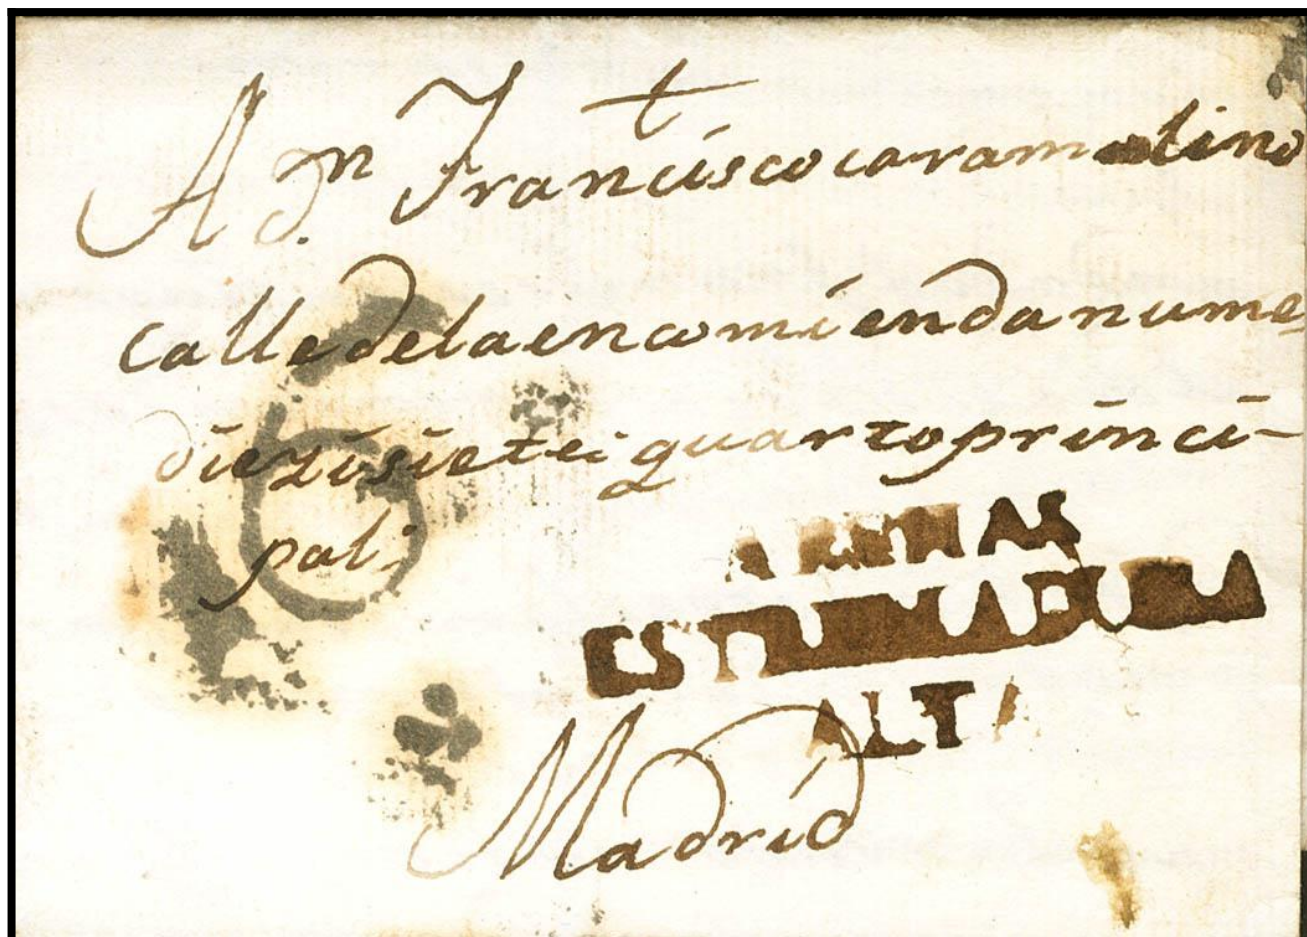 t
A Dn Francisco caramolino
calle de la encomienda nume
diezisiete quarto princi-
pal.
6
ARENAS
ESTREMADURA
ALTA
Madrid